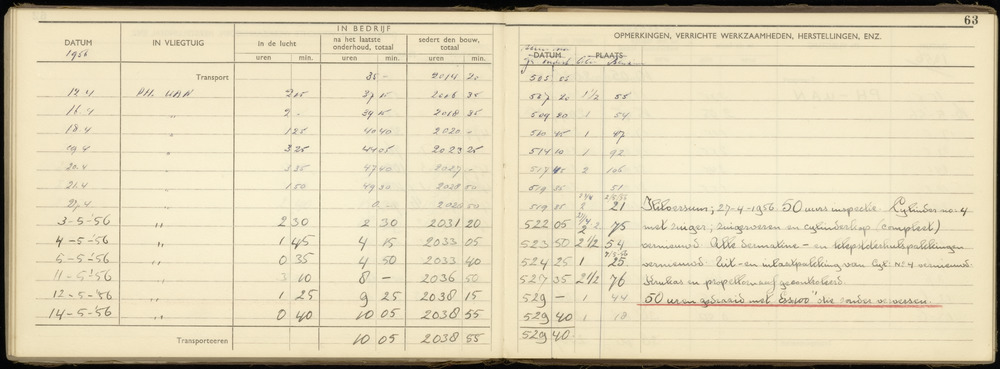 63
IN BEDRIJF
DATUM
IN VLIEGTUIG
in de lucht
na het laatste onderhoud, totaal
sedert den bouw, totaal
uren min. uren min. uren min.
1956
Transport 35 - 2014 20
12.4 PH. UAN 2 15 37 15 2016 35
16.4 " 2 - 39 15 2018 35
18.4 " 1 25 40 40 2020 -
19.4 " 3 25 44 05 2023 25
20.4 " 3 35 47 40 2027 -
21.4 " 1 50 49 30 2028 50
27.4 0 - 2028 50
3-5-'56 " 2 30 2 30 2031 20
4-5-'56 " 1 45 4 15 2033 05
5-5-'56 " 0 35 4 50 2033 40
11-5-'56 " 3 10 8 - 2036 50
12-5-'56 " 1 25 9 25 2038 15
14-5-'56 " 0 40 10 05 2038 55
Transporteeren 10 05 2038 55
OPMERKINGEN, VERRICHTE WERKZAAMHEDEN, HERSTELLINGEN, ENZ.
DATUM PLAATS
505 05
507 20 1 1/2 55
509 20 1 54
510 45 1 47
514 10 1 92
517 45 2 105
519 35 51
519 35 2 21 Hilversum, 27-4-1956. 50 uurs inspectie. Cylinder no: 4
522 05 2 75 met zuiger, zuigerveren en cylinderkop (compleet)
523 50 2 1/2 54 vernieuwd. Alle dermatine- en klepstelerhulspakkingen
524 25 1 25 vernieuwd. Uit- en inlaatpakking van Cyl: No 4 vernieuwd.
527 35 2 1/2 76 Krukas en propellernaaf gecontroleerd.
529 - 1 44 50 uren gedraaid met "Esso 100" olie zonder verversen.
529 40 1 18
529 40